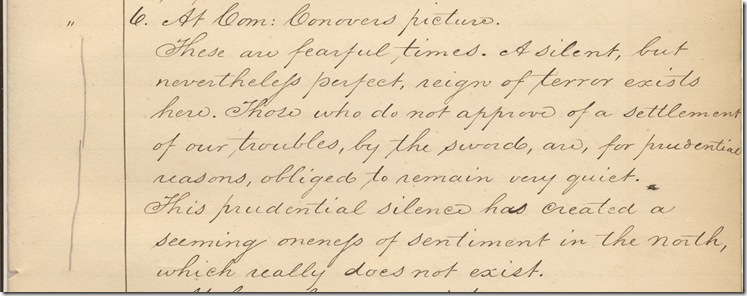 " 6. At Com: Conovers picture.
These are fearful times. A silent, but
nevertheless perfect, reign of terror exists
here. Those who do not approve of a settlement
of our troubles, by the sword, are, for prudential
reasons, obliged to remain very quiet.
This prudential silence has created a
seeming oneness of sentiment in the north,
which really does not exist.